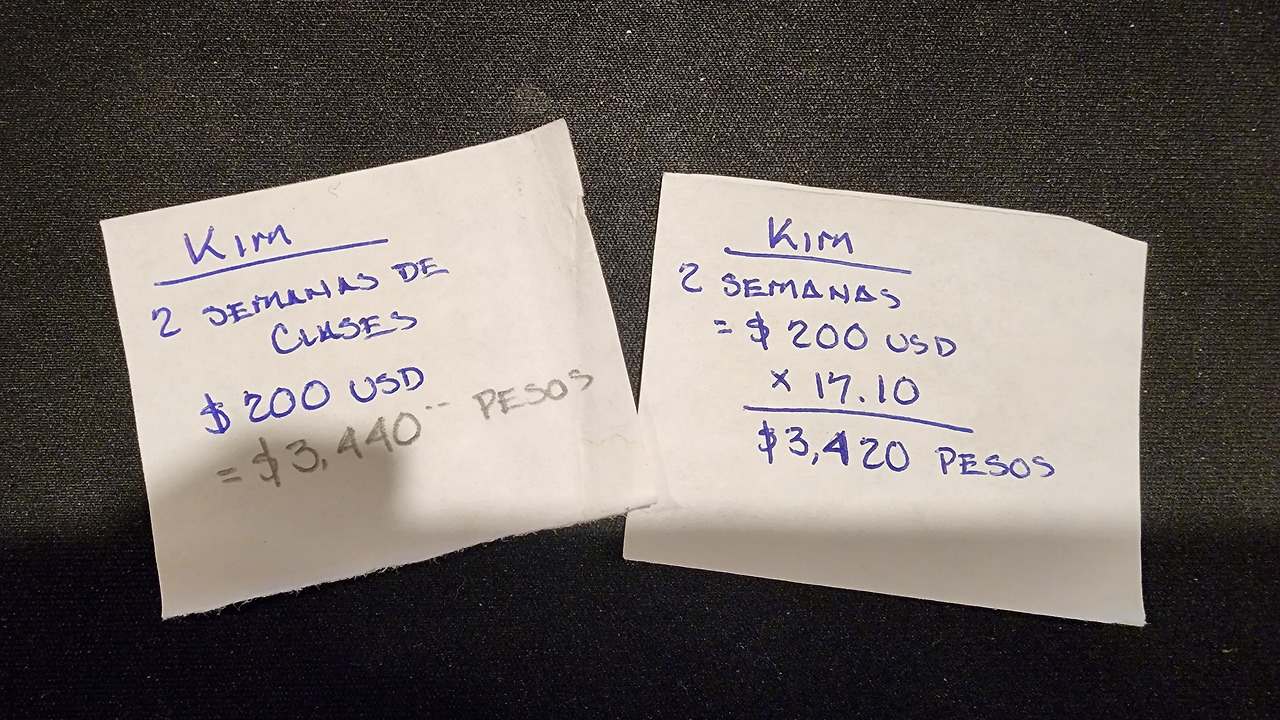 Kim
2 SEMANAS DE
CLASES
$200 USD
= $3,440-- PESOS
Kim
2 SEMANAS
= $200 USD
x 17.10
$3,420 PESOS